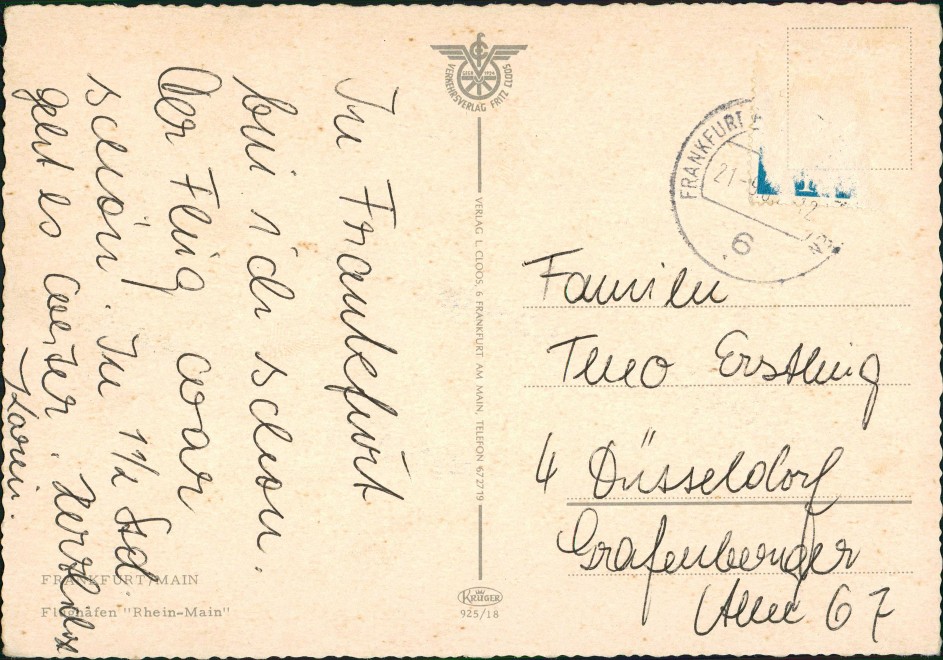 In Frankfurt
bin ich schon.
Der Flug war
schön. In 1 1/2 Std.
geht es weiter. Herzlichst
Karin.
VERKEHRSVERLAG FRITZ CLOOS
VERLAG L. CLOOS, 6 FRANKFURT AM MAIN, TELEFON 672719
FRANKFURT
21
12
6
Familie
Theo Erstling
4 Düsseldorf
Grafenberger
Allee 67
FRANKFURT/MAIN
Flughafen "Rhein-Main"
KRÜGER
925/18